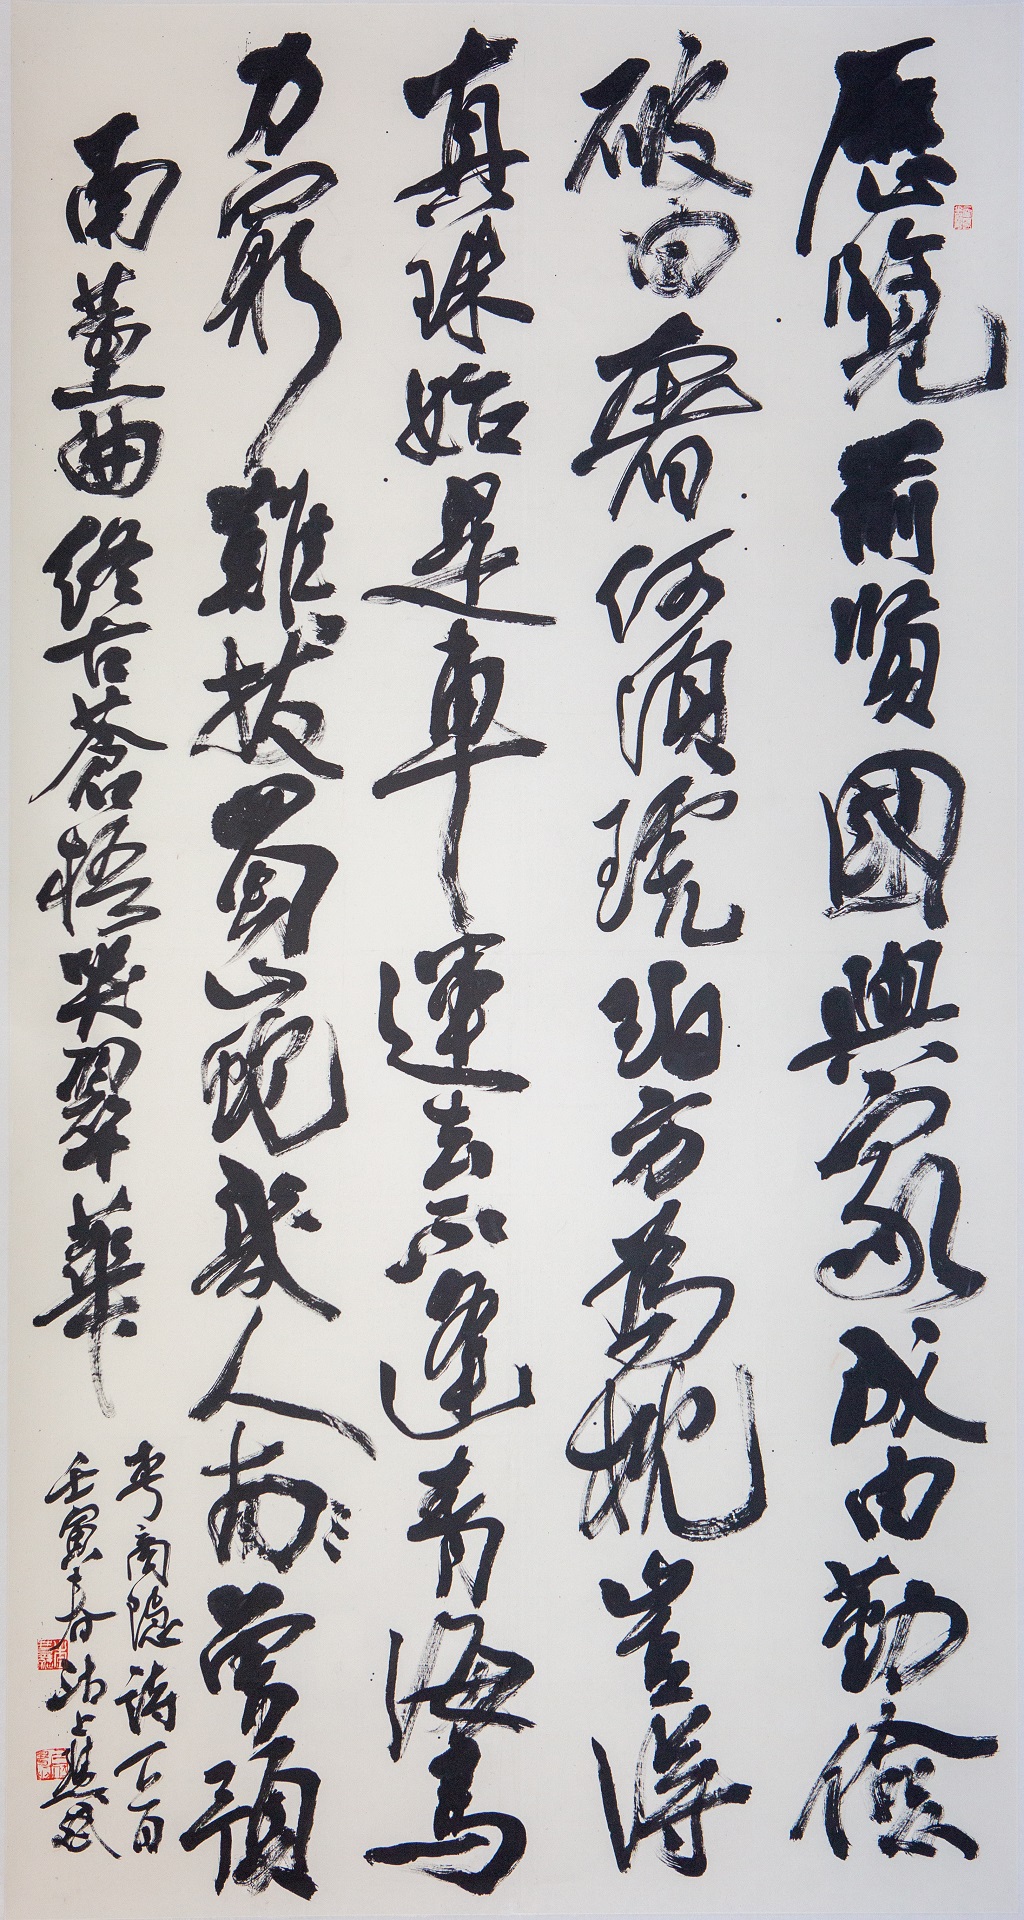 歷覽前賢國與家成由勤儉
破由奢何須琥珀方為枕豈得
真珠始是車運去不逢青海馬
力窮難拔蜀山蛇幾人南曾預
南薰曲終古蒼梧哭翠華
李商隱詩一首
壬寅春沽上